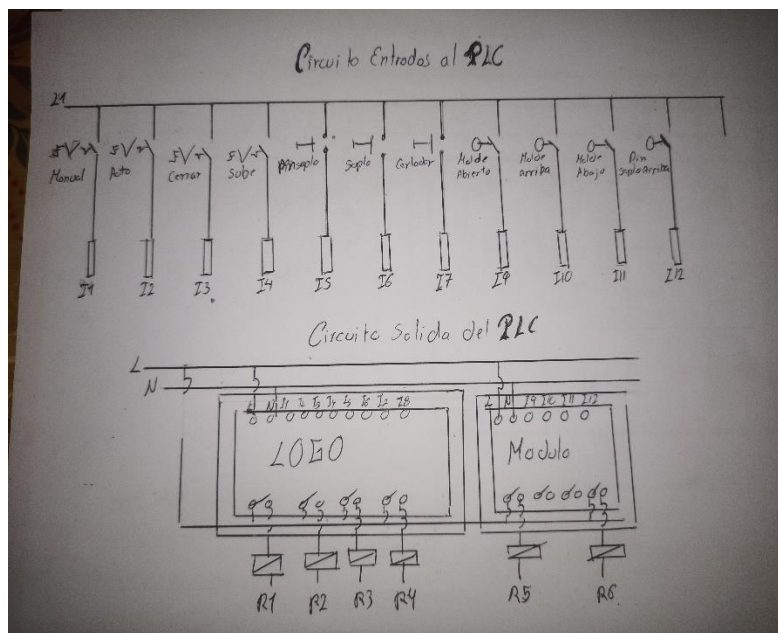 Circuito Entradas al PLC
L1
Manual Auto Cerrar Sube Pinsoplo Soplo Cortador Molde Abierto Molde arriba Molde Abajo Pin Soplo Arriba
I1 I2 I3 I4 I5 I6 I7 I9 I10 I11 I12
Circuito Salida del PLC
L
N
L N I1 I2 I3 I4 I5 I6 I7 I8 L N I9 I10 I11 I12
LOGO Modulo
R1 R2 R3 R4 R5 R6